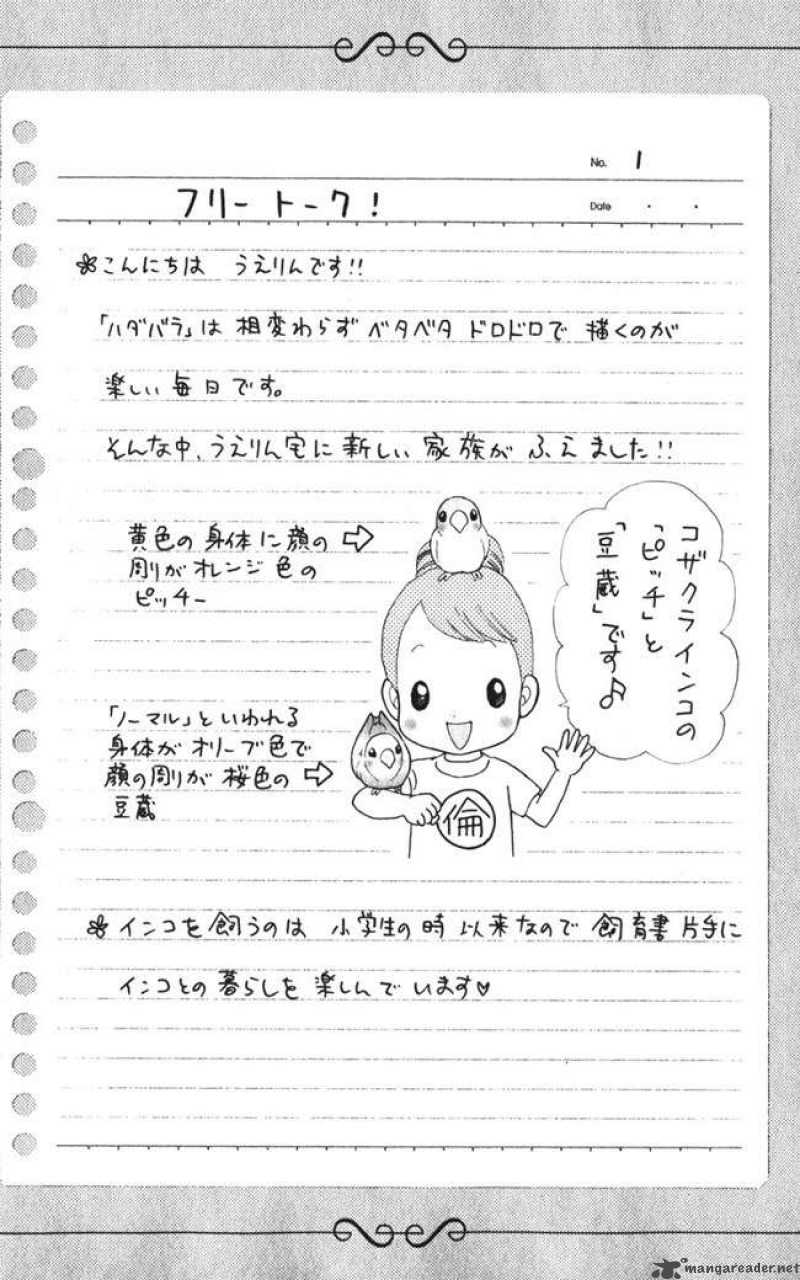 No. 1
フリートーク!
Date ・ ・
こんにちは うえりんです!!
「ハダバラ」は 相変わらず ベタベタ ドロドロで 描くのが
楽しい毎日です。
そんな中、うえりん宅に 新しい 家族が ふえました!!
コザクラインコの
「ピッチ」と
「豆蔵」です♪
黄色の 身体に顔の
周りがオレンジ色の
ピッチー
「ノーマル」といわれる
身体が オリーブ色で
顔の周りが 桜色の
豆蔵
倫
インコを飼うのは 小学生の時 以来なので 飼育書 片手に
インコとの暮らしを 楽しんで います♡
mangareader.net